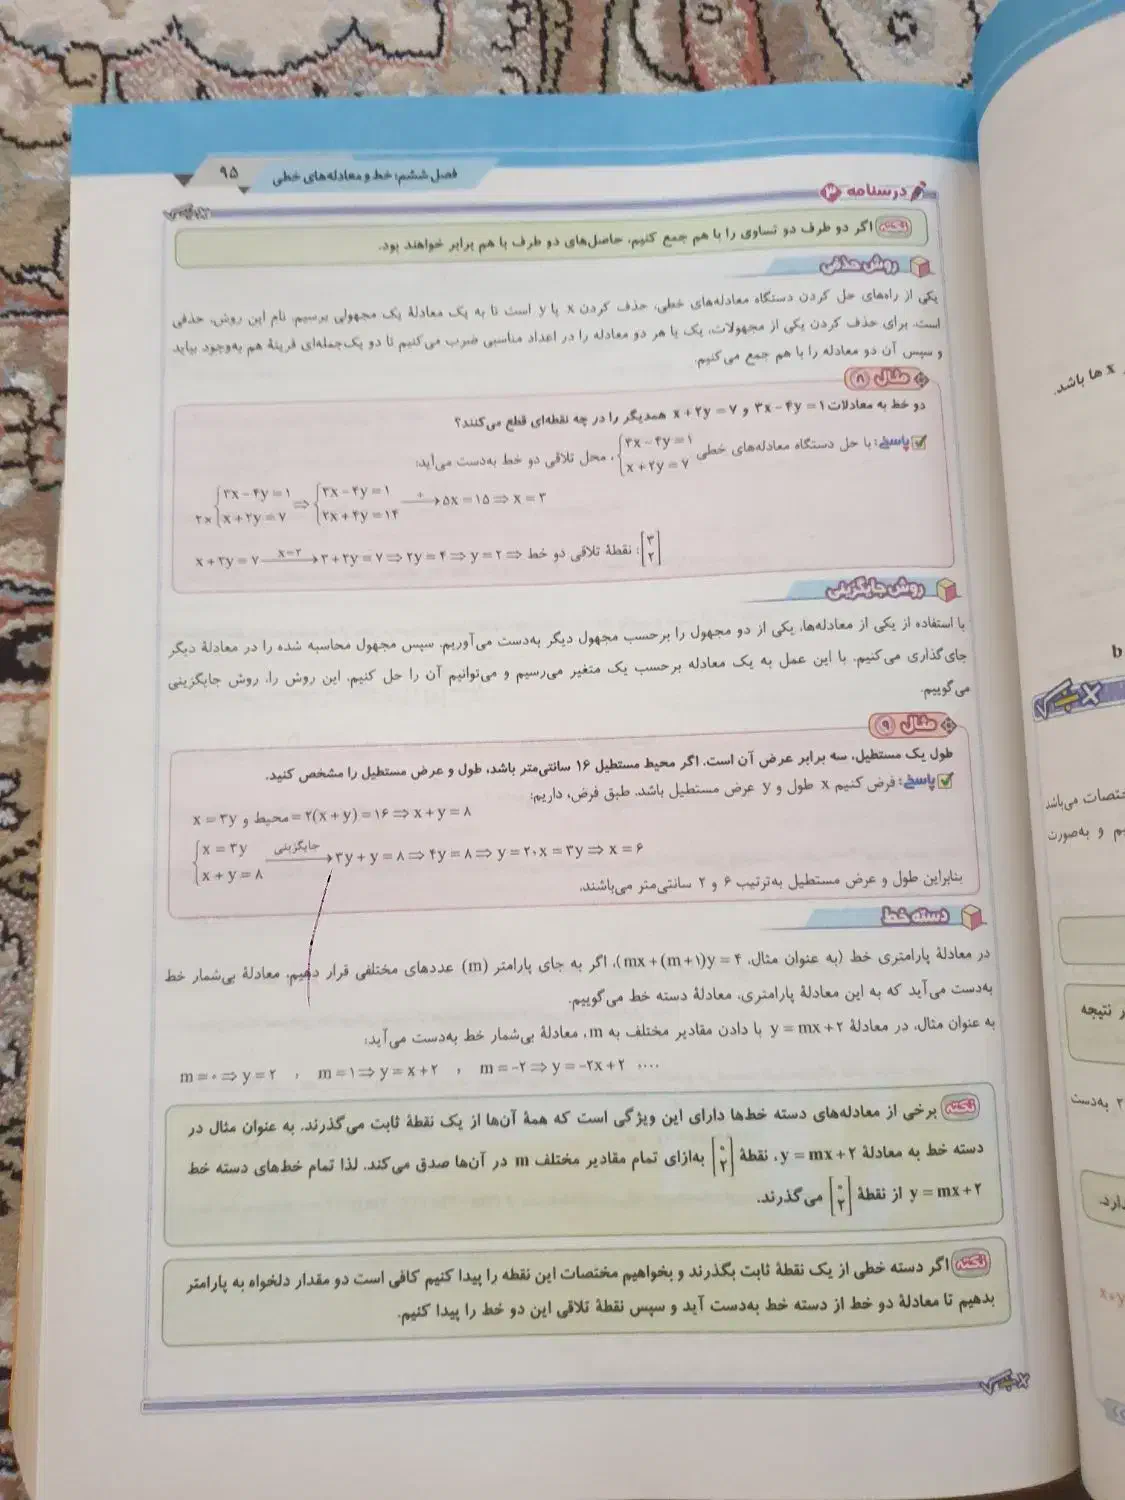 ۹۵
فصل ششم: خط و معادله‌های خطی
درسنامه ۳
نکته اگر دو طرف دو تساوی را با هم جمع کنیم، حاصل‌های دو طرف با هم برابر خواهند بود.
روش حذفی
یکی از راه‌های حل کردن دستگاه معادله‌های خطی، حذف کردن x یا y است تا به یک معادلهٔ یک مجهولی برسیم. نام این روش، حذفی
است. برای حذف کردن یکی از مجهولات، یک یا هر دو معادله را در اعداد مناسبی ضرب می‌کنیم تا دو یک‌جمله‌ای قرینهٔ هم به‌وجود بیاید
و سپس آن دو معادله را با هم جمع می‌کنیم.
مثال ۸
دو خط به معادلات ۳x − ۴y = ۱ و x + ۲y = ۷ همدیگر را در چه نقطه‌ای قطع می‌کنند؟
پاسخ: با حل دستگاه معادله‌های خطی {۳x − ۴y = ۱ , x + ۲y = ۷، محل تلاقی دو خط به‌دست می‌آید:
{۳x − ۴y = ۱ ⇒ {۳x − ۴y = ۱ —+→ ۵x = ۱۵ ⇒ x = ۳
۲× {x + ۲y = ۷ {۲x + ۴y = ۱۴
x + ۲y = ۷ —x=۳→ ۳ + ۲y = ۷ ⇒ ۲y = ۴ ⇒ y = ۲ ⇒ نقطهٔ تلاقی دو خط: [۳ ۲]
روش جایگزینی
با استفاده از یکی از معادله‌ها، یکی از دو مجهول را برحسب مجهول دیگر به‌دست می‌آوریم. سپس مجهول محاسبه شده را در معادلهٔ دیگر
جای‌گذاری می‌کنیم. با این عمل به یک معادله برحسب یک متغیر می‌رسیم و می‌توانیم آن را حل کنیم. این روش را، روش جایگزینی
می‌گوییم.
مثال ۹
طول یک مستطیل، سه برابر عرض آن است. اگر محیط مستطیل ۱۶ سانتی‌متر باشد، طول و عرض مستطیل را مشخص کنید.
پاسخ: فرض کنیم x طول و y عرض مستطیل باشد. طبق فرض، داریم:
x = ۳y و محیط = ۲(x + y) = ۱۶ ⇒ x + y = ۸
{x = ۳y —جایگزینی→ ۳y + y = ۸ ⇒ ۴y = ۸ ⇒ y = ۲، x = ۳y ⇒ x = ۶
{x + y = ۸
بنابراین طول و عرض مستطیل به‌ترتیب ۶ و ۲ سانتی‌متر می‌باشند.
دسته خط
در معادلهٔ پارامتری خط (به عنوان مثال، mx + (m + ۱)y = ۴)، اگر به جای پارامتر (m) عددهای مختلفی قرار دهیم، معادلهٔ بی‌شمار خط
به‌دست می‌آید که به این معادلهٔ پارامتری، معادلهٔ دسته خط می‌گوییم.
به عنوان مثال، در معادلهٔ y = mx + ۲ با دادن مقادیر مختلف به m، معادلهٔ بی‌شمار خط به‌دست می‌آید:
m = ۰ ⇒ y = ۲ ، m = ۱ ⇒ y = x + ۲ ، m = −۲ ⇒ y = −۲x + ۲ ، ...
نکته برخی از معادله‌های دسته خط‌ها دارای این ویژگی است که همهٔ آن‌ها از یک نقطهٔ ثابت می‌گذرند. به عنوان مثال در
دسته خط به معادلهٔ y = mx + ۲، نقطهٔ [۰ ۲] به‌ازای تمام مقادیر مختلف m در آن‌ها صدق می‌کند. لذا تمام خط‌های دسته خط
y = mx + ۲ از نقطهٔ [۰ ۲] می‌گذرند.
نکته اگر دسته خطی از یک نقطهٔ ثابت بگذرند و بخواهیم مختصات این نقطه را پیدا کنیم کافی است دو مقدار دلخواه به پارامتر
بدهیم تا معادلهٔ دو خط از دسته خط به‌دست آید و سپس نقطهٔ تلاقی این دو خط را پیدا کنیم.
x ها باشد.
b
می‌باشد
یم و به‌صورت
ر نتیجه
۲ به‌دست